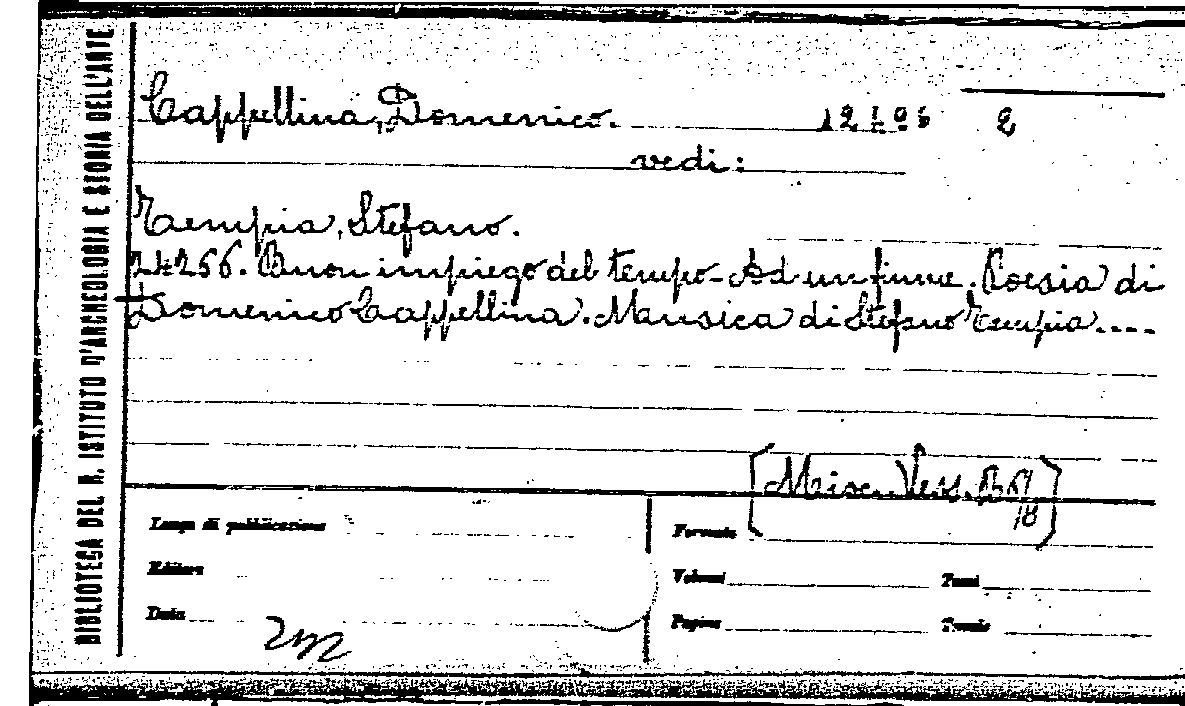 BIBLIOTECA DEL R. ISTITUTO D'ARCHEOLOGIA E STORIA DELL'ARTE
Cappellina, Domenico. 2
vedi:
Tempia, Stefano.
24256. Buon impiego del tempo - Ad un fiume. Poesia di
Domenico Cappellina. Musica di Stefano Tempia....
[Misc. Vess. B 6/8]
Luogo di pubblicazione
Formato
Editore
Volumi
Tomi
Data
Pagine
Tavole